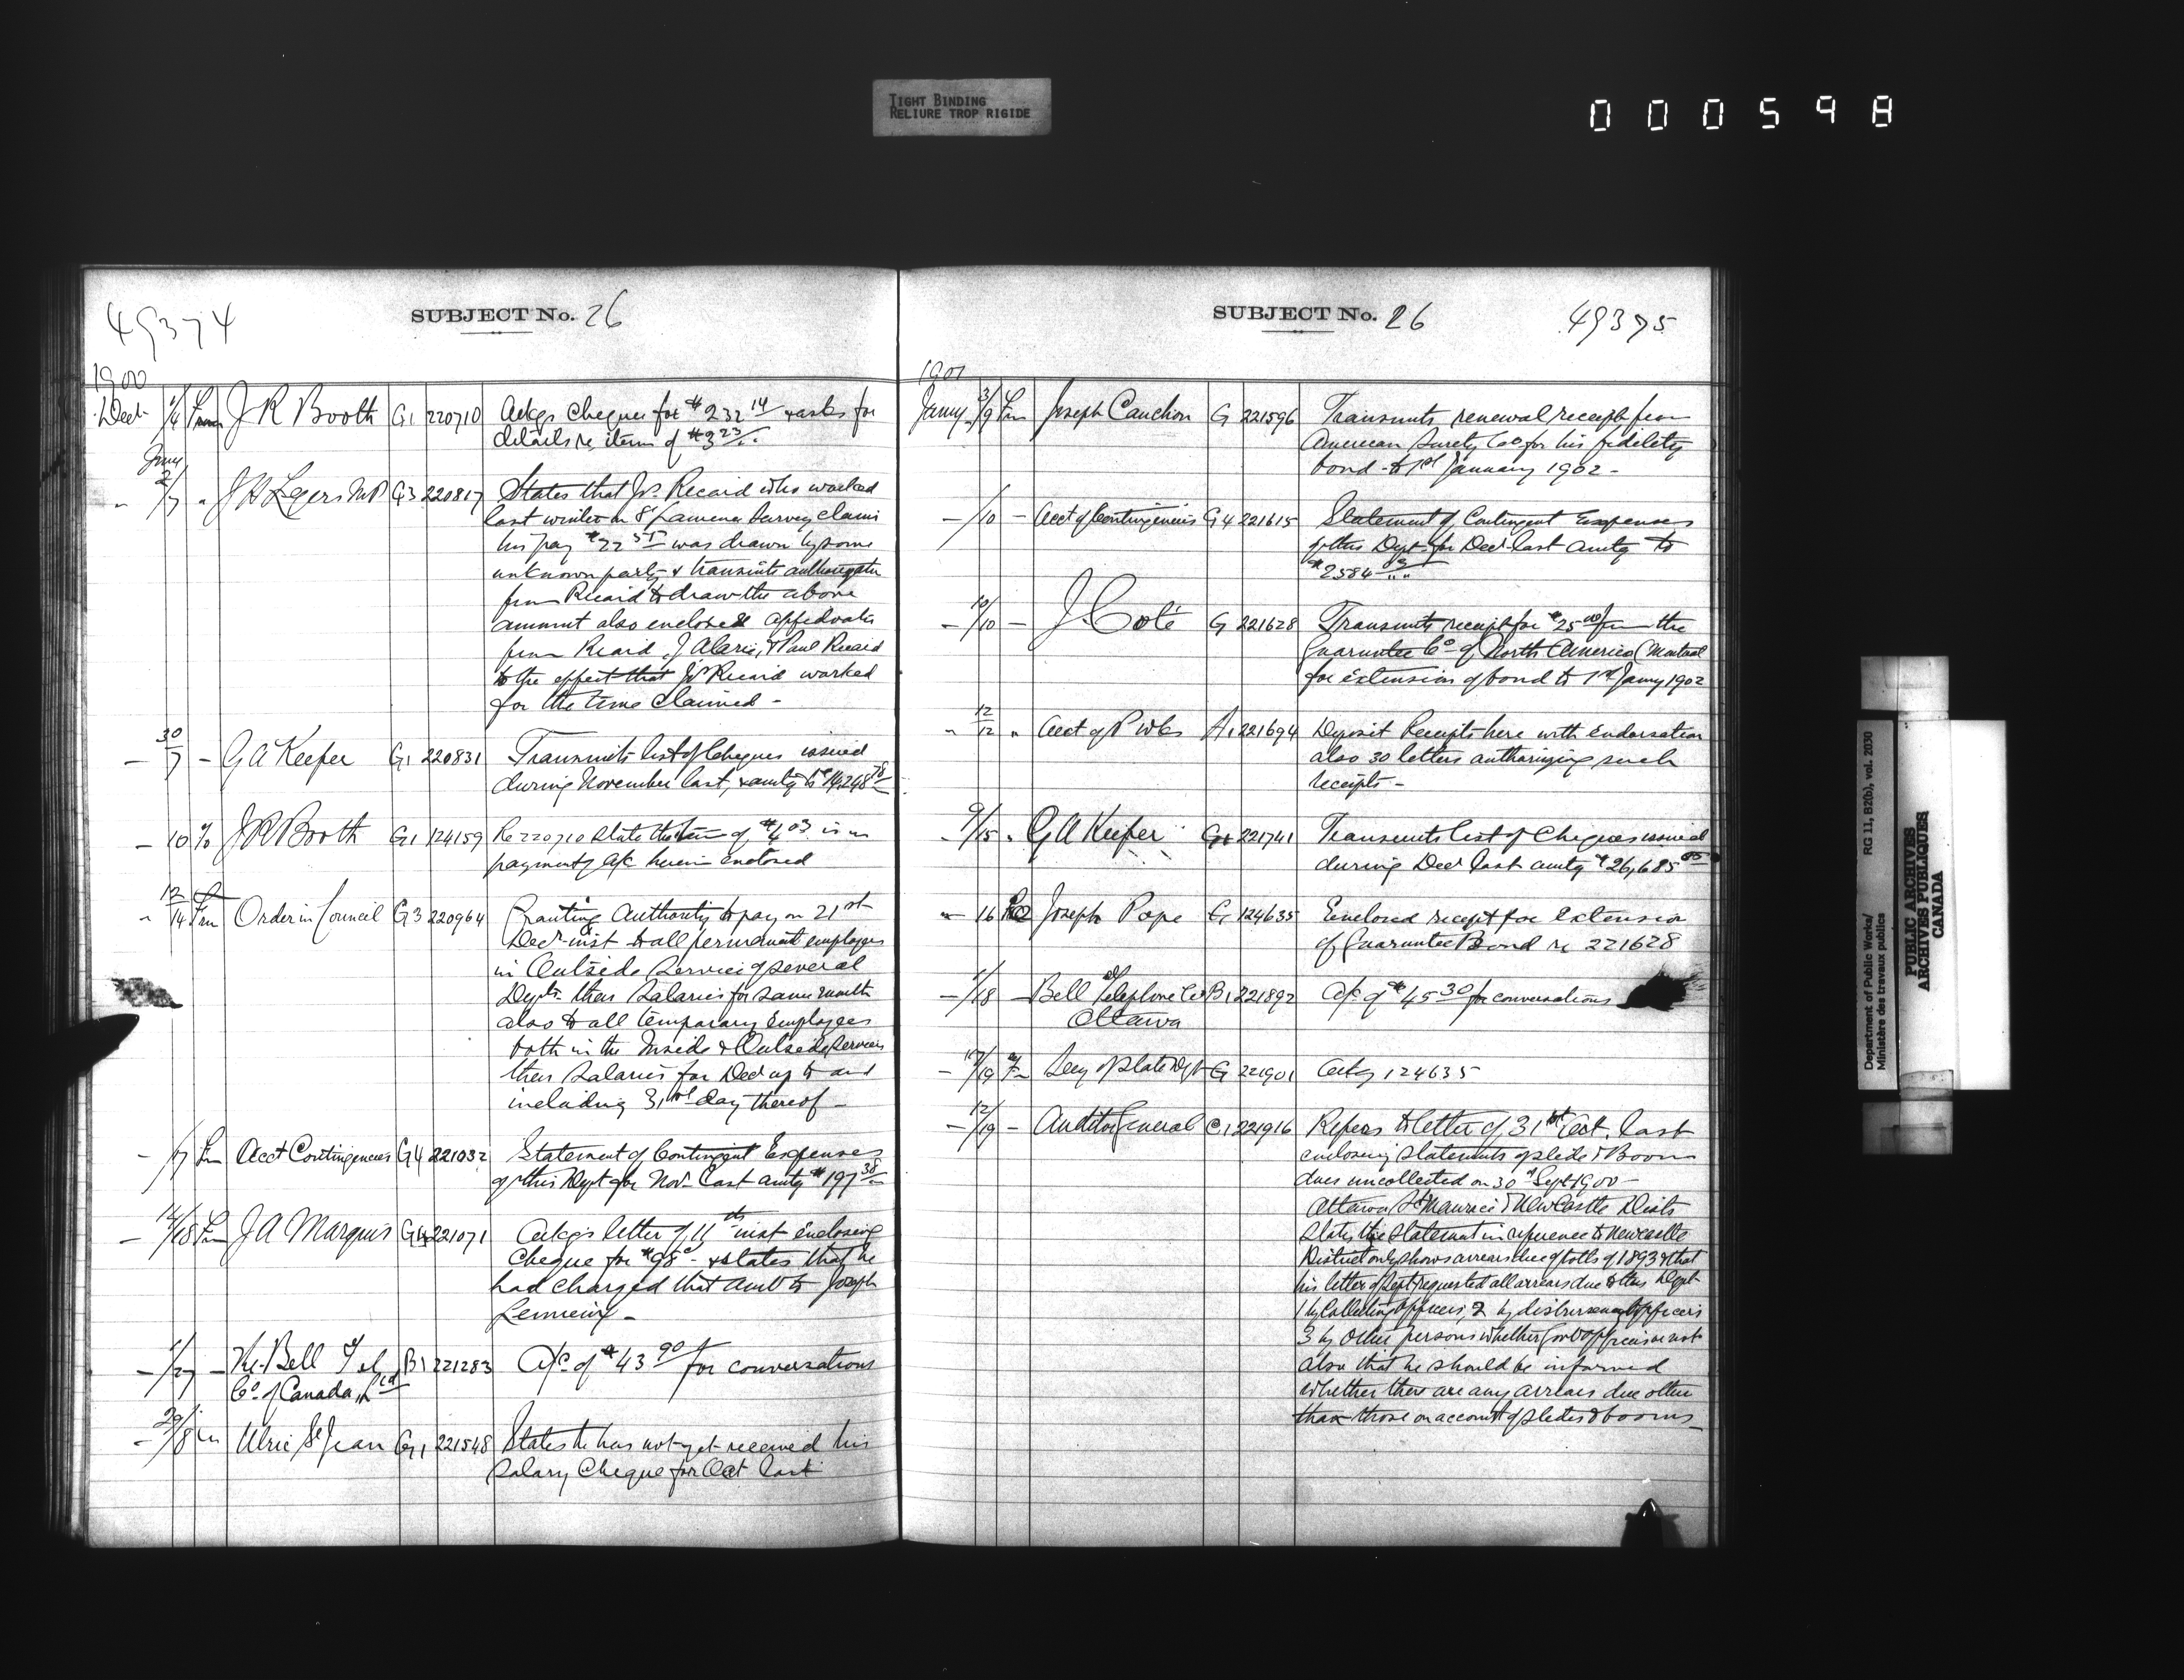 TIGHT BINDING
RELIURE TROP RIGIDE
000598
49374
SUBJECT No. 26
1900
Decr 1/4 From J R Booth G1 220710 Ackgs cheques for $232 14 & asks for
details re item of $3 23
2/7 " J H Legers MP G3 220817 States that Js. Ricard who worked
last winter on survey claims
his pay $22 was drawn by some
unknown party & transmits
from Ricard to draw the above
amount also encloses affidavits
from Ricard, J Alarie, & Paul Ricard
to the effect that Js Ricard worked
for the time claimed -
- 30/7 - G A Keefer G1 220831 Transmits list of Cheques issued
during November last, & amtg to $14,248 78
- 10 To J R Booth G1 124159 Re 220710 state the item of $4 03 is in
payment of a/c herein enclosed
" 12/14 Frm Order in Council G3 220964 Granting Authority to pay on 21st
Decr inst to all permanent employees
in Outside Service of several
Depts. their Salaries for same month
also to all temporary Employees
both in the Inside & Outside Services
their Salaries for Decr up to and
including 31st day thereof -
- 17 Fm Acct Contingencies G4 221032 Statement of Contingent Expenses
of this Dept for Novr last amtg $197 38
- 14/18 Fm J A Marquis G4 221071 Ackgs letter of 11th inst enclosing
Cheque for $98 - & states that he
had charged that amt to Joseph
Lemieux -
- 1/27 - The Bell Tel B1 221283 A/c of $43 90 for conversations
Co. of Canada, Ltd
- 29/8 Ulric St Jean G1 221548 States he has not yet received his
salary Cheque for Oct last
SUBJECT No. 26
49375
1901
Jany 3/9 Fm Joseph Cauchon G 221596 Transmits renewal receipt from
American Surety Co. for his fidelity
bond to 1st January 1902 -
- /10 - Acct of Contingencies G4 221615 Statement of Contingent Expenses
of this Dept for Decr last amtg to
$2584
- 10/10 - J. Coté G 221628 Transmits receipt for $25 00 from the
Guarantee Co. of North America (Montreal
for extension of bond to 1st Jany 1902
" 12/12 " Acct of P Wks A1 221694 Deposit Receipts here with endorsation
also 30 letters authorizing such
receipts -
- 9/15 " G A Keefer G1 221741 Transmits list of Cheques issued
during Decr last amtg $26,685
" 16 To Joseph Pope G 124635 Enclosed receipt for extension
of Guarantee Bond re 221628
- 1/18 - Bell Telephone Co B1 221892 A/c of $45 30 for conversations
Ottawa
- 17/19 Fm Secy of State Dept G 221901 Ackg 124635
- 12/19 - Auditor General C1 221916 Refers to letter of 31st Oct. last
enclosing statements of slide & Boom
dues uncollected on 30th Sept 1900 -
Ottawa, St Maurice & Newcastle Dists
States the statement in reference to Newcastle
District only shows arrears due of tolls of 1893 & that
his letter of Sept requested all arrears due to this Dept
1 by Collecting Officers, 2 by disbursement officers
3 by other persons whether Govt officers or not
also that he should be informed
whether there are any arrears due other
than those on account of slides & booms -
Department of Public Works/
Ministère des travaux publics
RG 11, B2(b), vol. 2030
PUBLIC ARCHIVES
ARCHIVES PUBLIQUES
CANADA